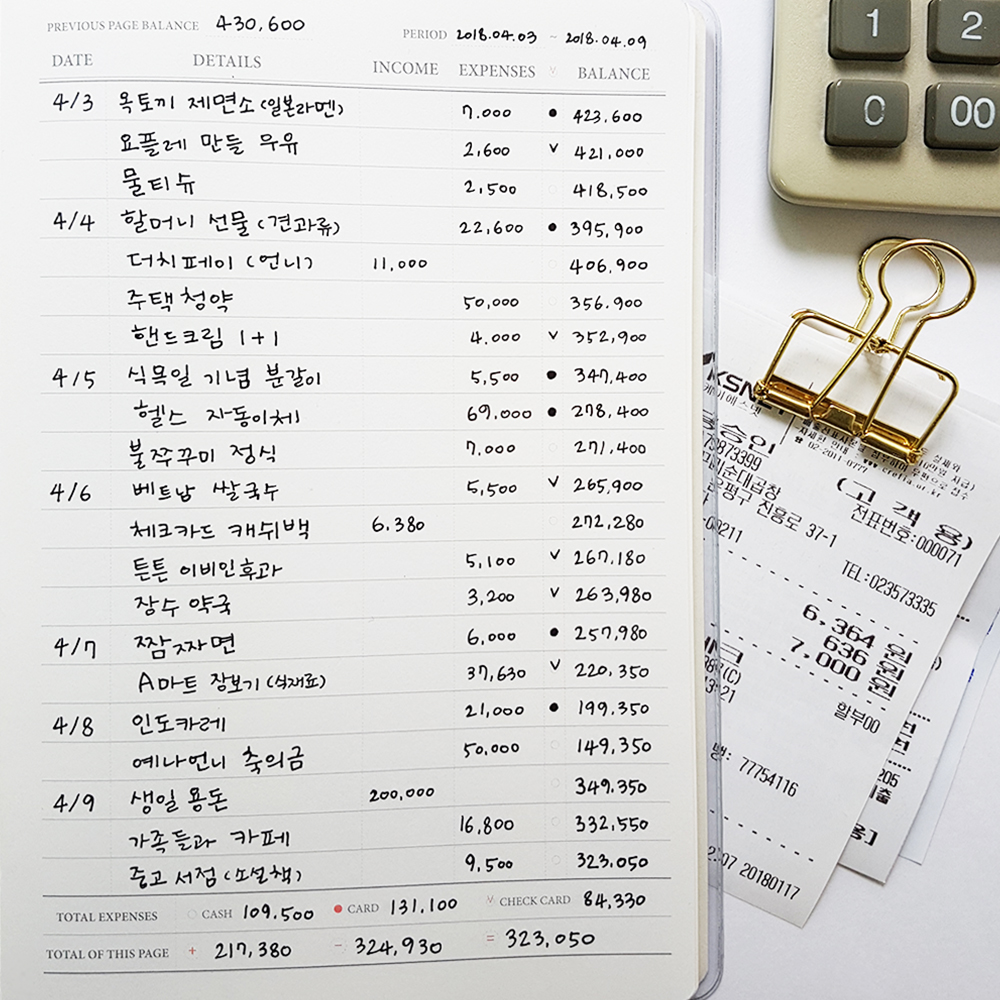 PREVIOUS PAGE BALANCE 430,600
PERIOD 2018.04.03 ~ 2018.04.09
DATE DETAILS INCOME EXPENSES v BALANCE
4/3 옥토끼 제면소 (일본라멘) 7.000 ● 423,600
요플레 만들 우유 2,600 v 421,000
물티슈 2,500 418,500
4/4 할머니 선물 (견과류) 22,600 ● 395,900
더치페이 (언니) 11,000 406,900
주택청약 50,000 356.900
핸드크림 1+1 4.000 v 352,900
4/5 식목일 기념 분갈이 5,500 ● 347,400
헬스 자동이체 69.000 ● 278,400
불쭈꾸미 정식 7.000 271,400
4/6 베트남 쌀국수 5,500 v 265,900
체크카드 캐쉬백 6.380 272,280
튼튼 이비인후과 5,100 v 267,180
장수 약국 3,200 v 263,980
4/7 짬짜면 6,000 ● 257,980
A마트 장보기 (식재료) 37,630 v 220,350
4/8 인도카레 21,000 ● 199,350
예나언니 축의금 50,000 149,350
4/9 생일 용돈 200,000 349,350
가족들과 카페 16,800 332,550
중고 서점 (소설책) 9,500 323,050
TOTAL EXPENSES ○ CASH 109,500 ● CARD 131,100 v CHECK CARD 84,330
TOTAL OF THIS PAGE + 217,380 - 324,930 = 323,050
1 2
0 00
KSNET
케이에스넷
☎ 02-2011-0777
crefia.or.kr
승인
(고 객 용)
73873399
순대곱창
전표번호:000071
은평구 진흥로 37-1
-00211
TEL:023573335
6,364 원
636 원
7,000 원
할부00
77754116
20180117
205